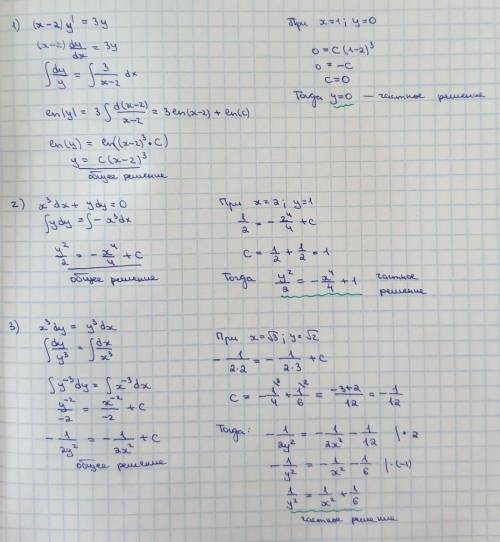 1) (x-2) y' = 3y
(x-2) dy/dx = 3y
∫ dy/y = ∫ 3/(x-2) dx
ln(y) = 3 ∫ d(x-2)/(x-2) = 3 ln(x-2) + ln(c)
ln(y) = ln((x-2)³ · C)
y = C(x-2)³
общее решение
При x=1; y=0
0 = C(1-2)³
0 = -C
C = 0
Тогда y=0 — частное решение
2) x³dx + ydy = 0
∫ydy = ∫-x³dx
y²/2 = - x⁴/4 + C
общее решение
При x=2; y=1
1/2 = - 2⁴/4 + C
C = 1/2 + 1/2 = 1
Тогда y²/2 = - x⁴/4 + 1 частное
решение
3) x³dy = y³dx
∫ dy/y³ = ∫ dx/x³
∫ y⁻³dy = ∫ x⁻³dx
y⁻²/-2 = x⁻²/-2 + C
- 1/2y² = - 1/2x² + C
общее решение
При x=√3; y=√2
- 1/2·2 = - 1/2·3 + C
C = - 1\³/4 + 1\²/6 = -3+2/12 = - 1/12
Тогда: - 1/2y² = - 1/2x² - 1/12 |· 2
- 1/y² = - 1/x² - 1/6 |·(-1)
1/y² = 1/x² + 1/6
частное решение